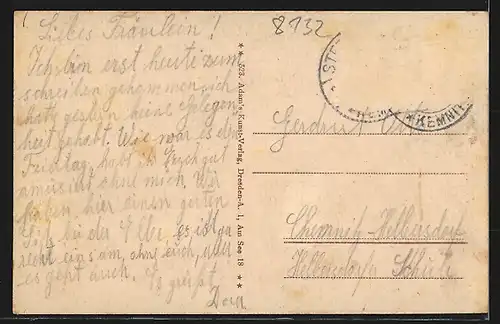 8132
Liebes Fräulein!
Ich bin erst heute zum
schreiben gekommen, ich
hatte gestern keine Gelegen-
heit gehabt. Wie war es
Freitag, habt ihr Euch gut
amüsiert ohne mich. Wir
haben hier einen guten
an der Elbe, es ist ja
recht einsam, ohne euch, aber
es geht auch. Es grüßt
Dora
** 523. Adam's Kunst-Verlag, Dresden-A. 1, Am See 18 **
KEMNIT
Gertrud
Chemnitz-Hilbersdorf
Hilbersdorfer